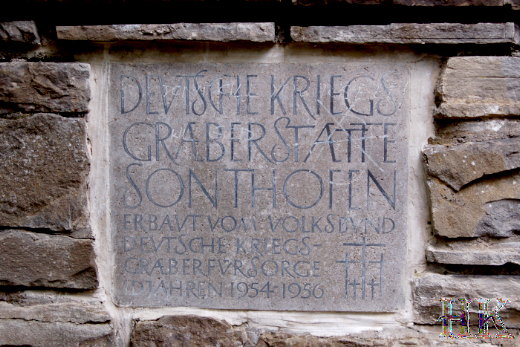 DEUTSCHE KRIEGS
GRÆBERSTÆTTE
SONTHOFEN
ERBAUT VOM VOLKSBUND
DEUTSCHE KRIEGS-
GRÆBERFÜRSORGE
JAHREN 1954-1956
HR